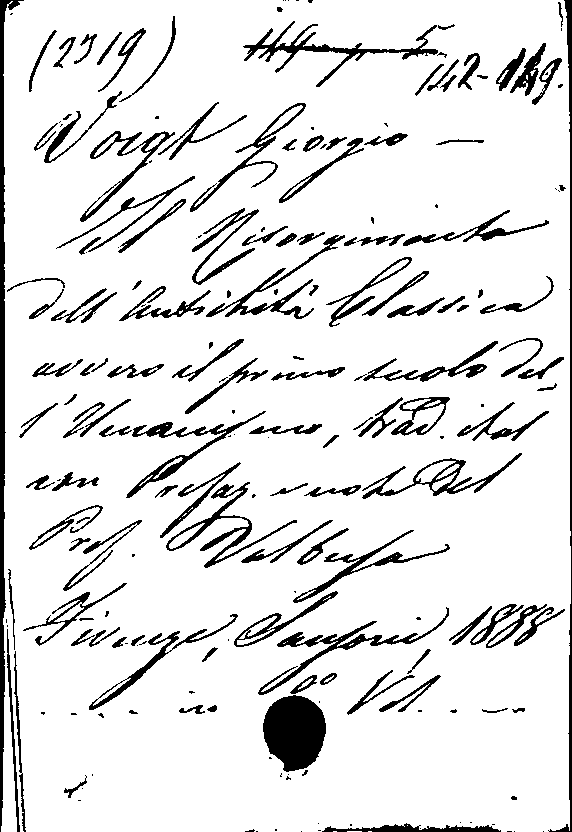 (2319) 149 5
142-149.
Voigt Giorgio —
Il Risorgimento
dell'Antichità Classica
ovvero il primo secolo del-
l'Umanismo, trad. ital
con Prefaz. e note del
Prof. Valbusa
Firenze, Sansoni, 1888
..... in 8° Vol. ...